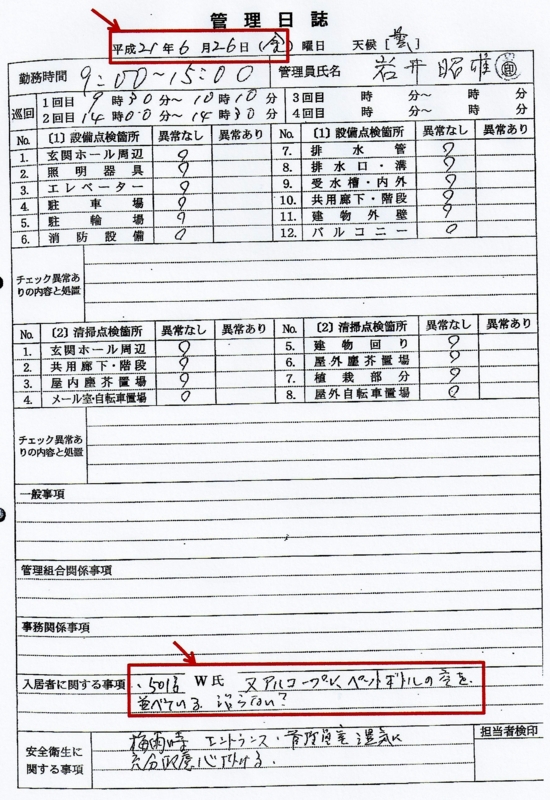 管理日誌
平成21年6月26日(金)曜日 天候[曇]
勤務時間 9:00～15:00 管理員氏名 岩井昭雄
巡回 1回目 9時30分～10時10分 3回目 時 分～ 時 分
2回目 14時00分～14時30分 4回目 時 分～ 時 分
No. 〔1〕設備点検箇所 異常なし 異常あり 〔1〕設備点検箇所 異常なし 異常あり
1. 玄関ホール周辺 7. 排水管
2. 照明器具 8. 排水口・溝
3. エレベーター 9. 受水槽・内外
4. 駐車場 10. 共用廊下・階段
5. 駐輪場 11. 建物外壁
6. 消防設備 12. バルコニー
チェック異常あ
りの内容と処置
No. 〔2〕清掃点検箇所 異常なし 異常あり No. 〔2〕清掃点検箇所 異常なし 異常あり
1. 玄関ホール周辺 5. 建物回り
2. 共用廊下・階段 6. 屋外塵芥置場
3. 屋内塵芥置場 7. 植栽部分
4. メール室・自転車置場 8. 屋外自転車置場
チェック異常あ
りの内容と処置
一般事項
管理組合関係事項
事務関係事項
入居者に関する事項 501 W氏 又アルコープに、ペットボトルの空を、
並べている 治らない？
担当者検印
安全衛生に 梅雨時 エントランス・ 湿気に
関する事項 充分 心掛ける。